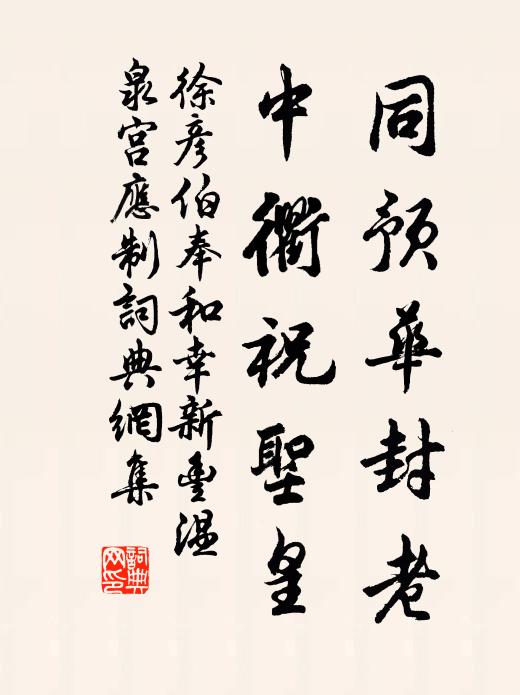 同预華封老
中衢祝聖皇
徐彦伯奉和幸新豐温
泉宫應制詞典網集
詞典
网印